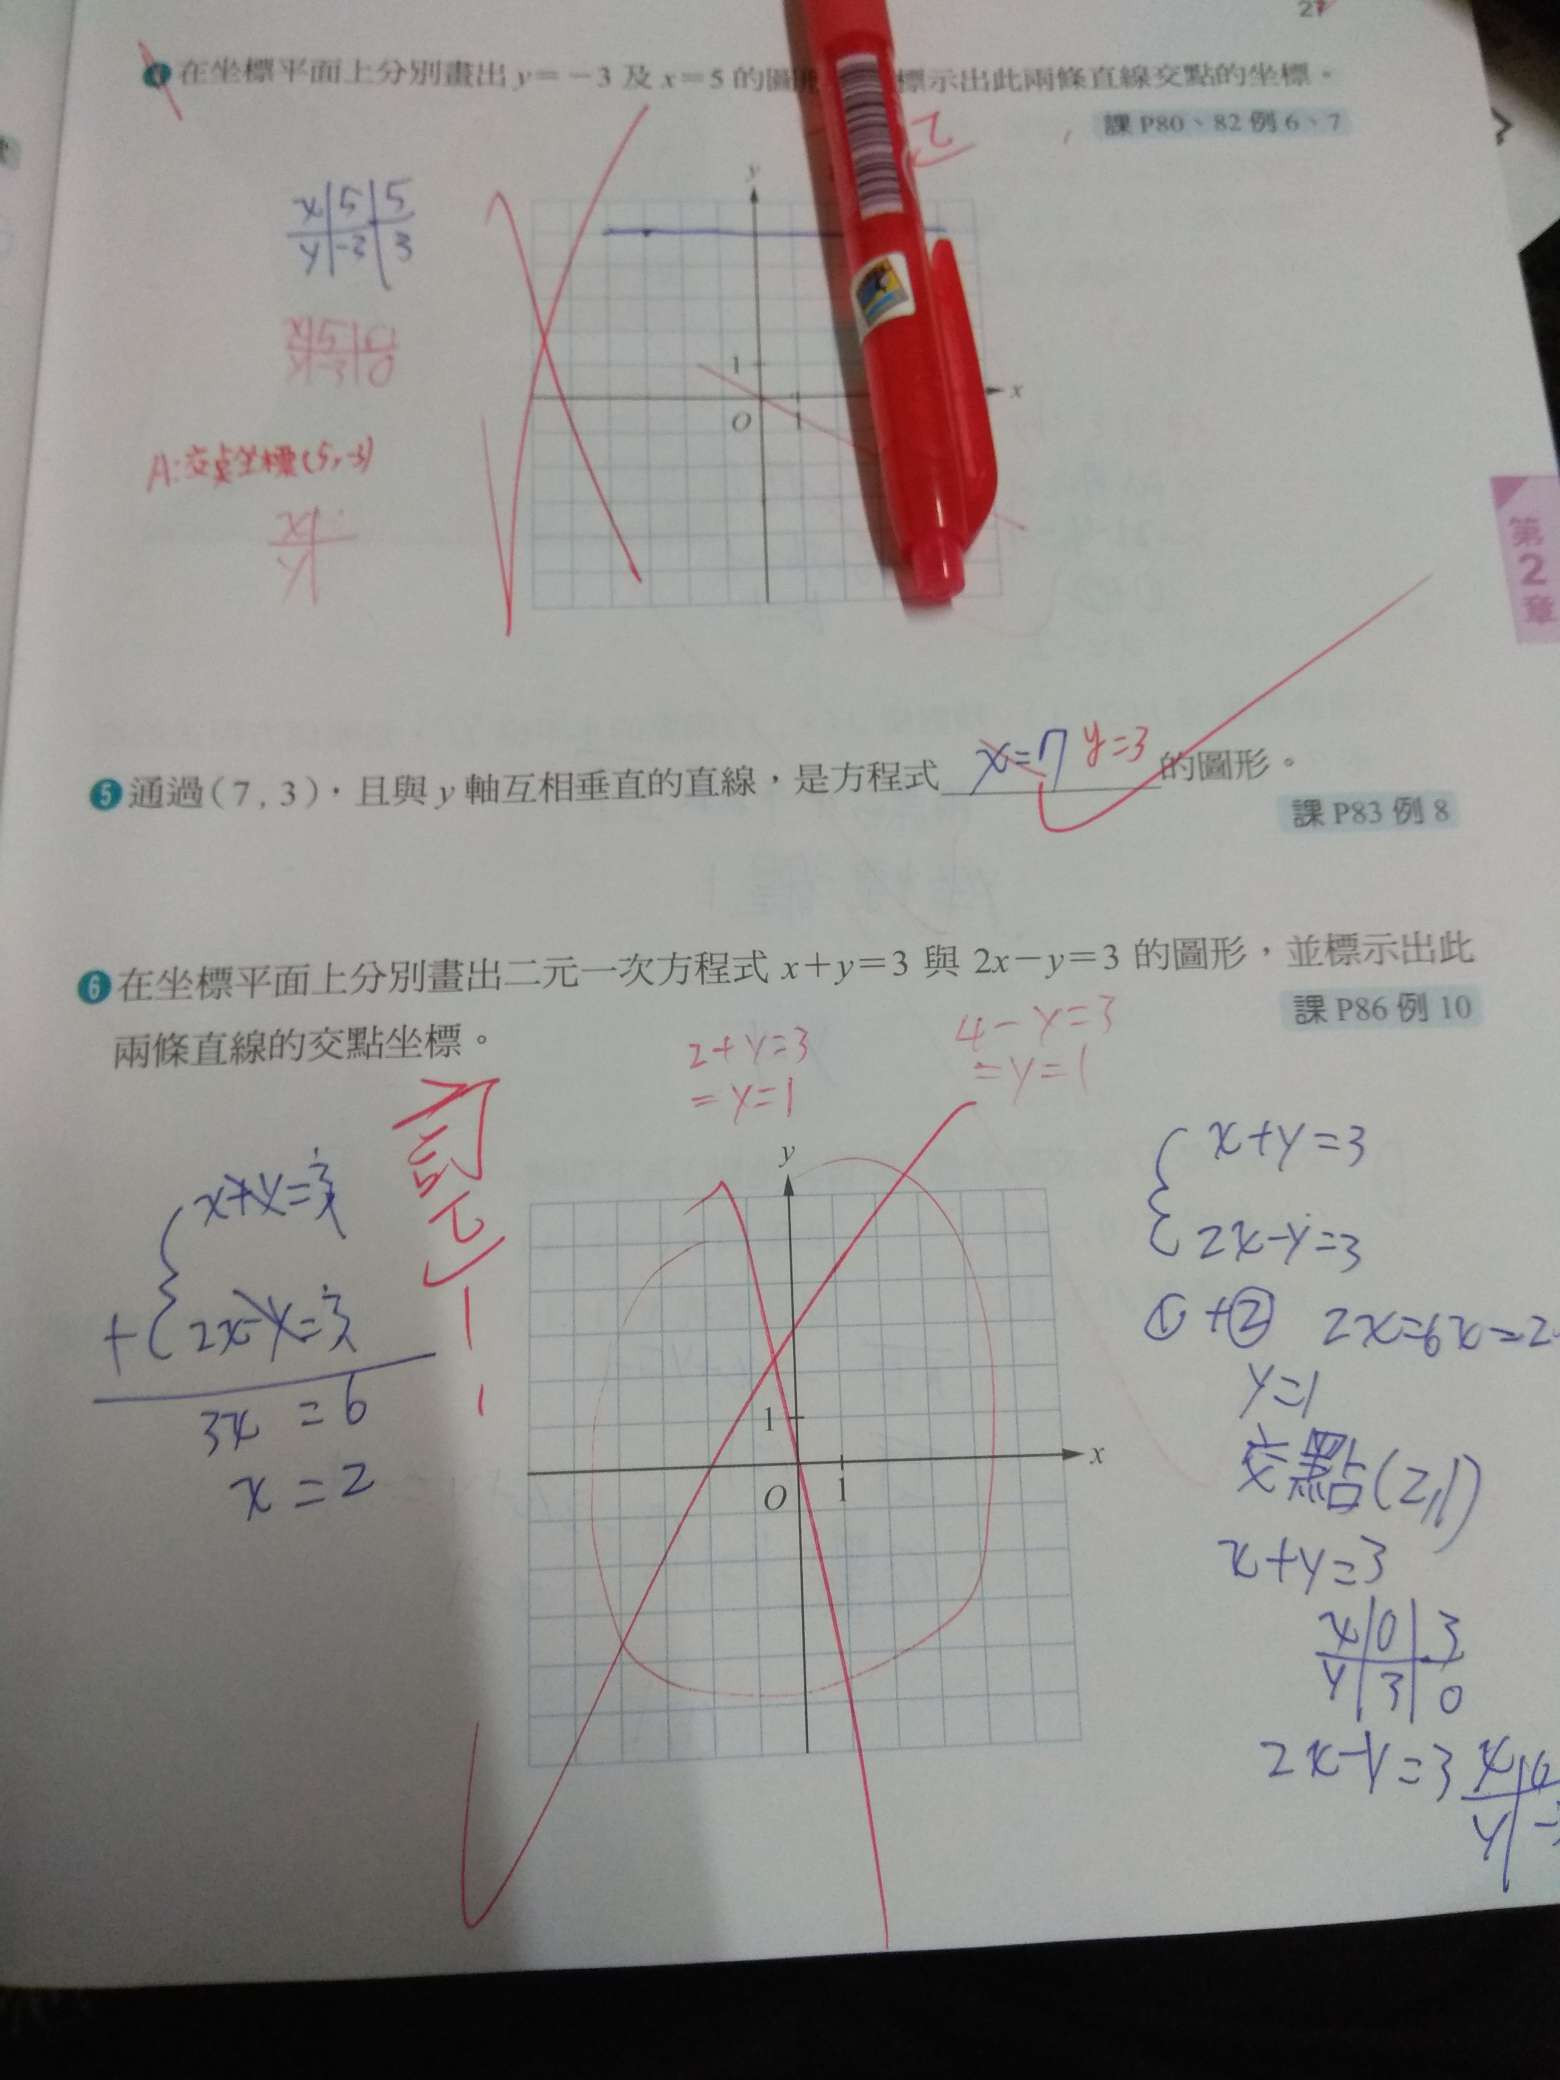 27
在坐標平面上分別畫出 y=-3 及 x=5 的圖 標示出此兩條直線交點的坐標。
課 P80、82 例 6、7
x 5 5
y -3 3
x 5 0
-3 0
A:交點坐標(5,-3)
x
y
y
1
O
1
x
第2章
5 通過(7, 3),且與 y 軸互相垂直的直線,是方程式 x=7 y=3 的圖形。
課 P83 例 8
6 在坐標平面上分別畫出二元一次方程式 x+y=3 與 2x-y=3 的圖形,並標示出此
兩條直線的交點坐標。
課 P86 例 10
2+y=3
=y=1
4-y=3
=y=1
訂正
x+y=3
+ 2x-y=3
3x=6
x=2
y
1
O
1
x
x+y=3
2x-y=3
①+② 2x=6 x=2
y=1
交點(2,1)
x+y=3
x 0 3
y 3 0
2x-y=3
x 0
y